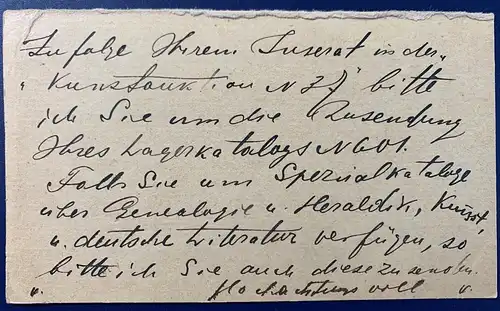 Zufolge Ihrem Inserat in der „
„Kunstauktion N 37" bitte
ich Sie um die Zusendung
Ihres Lagerkatalogs N 601.
Falls Sie um Spezialkataloge
über Genealogie u. Heraldik, Kunst,
u. deutsche Literatur verfügen, so
bitte ich Sie auch diese zu senden.
Hochachtungsvoll